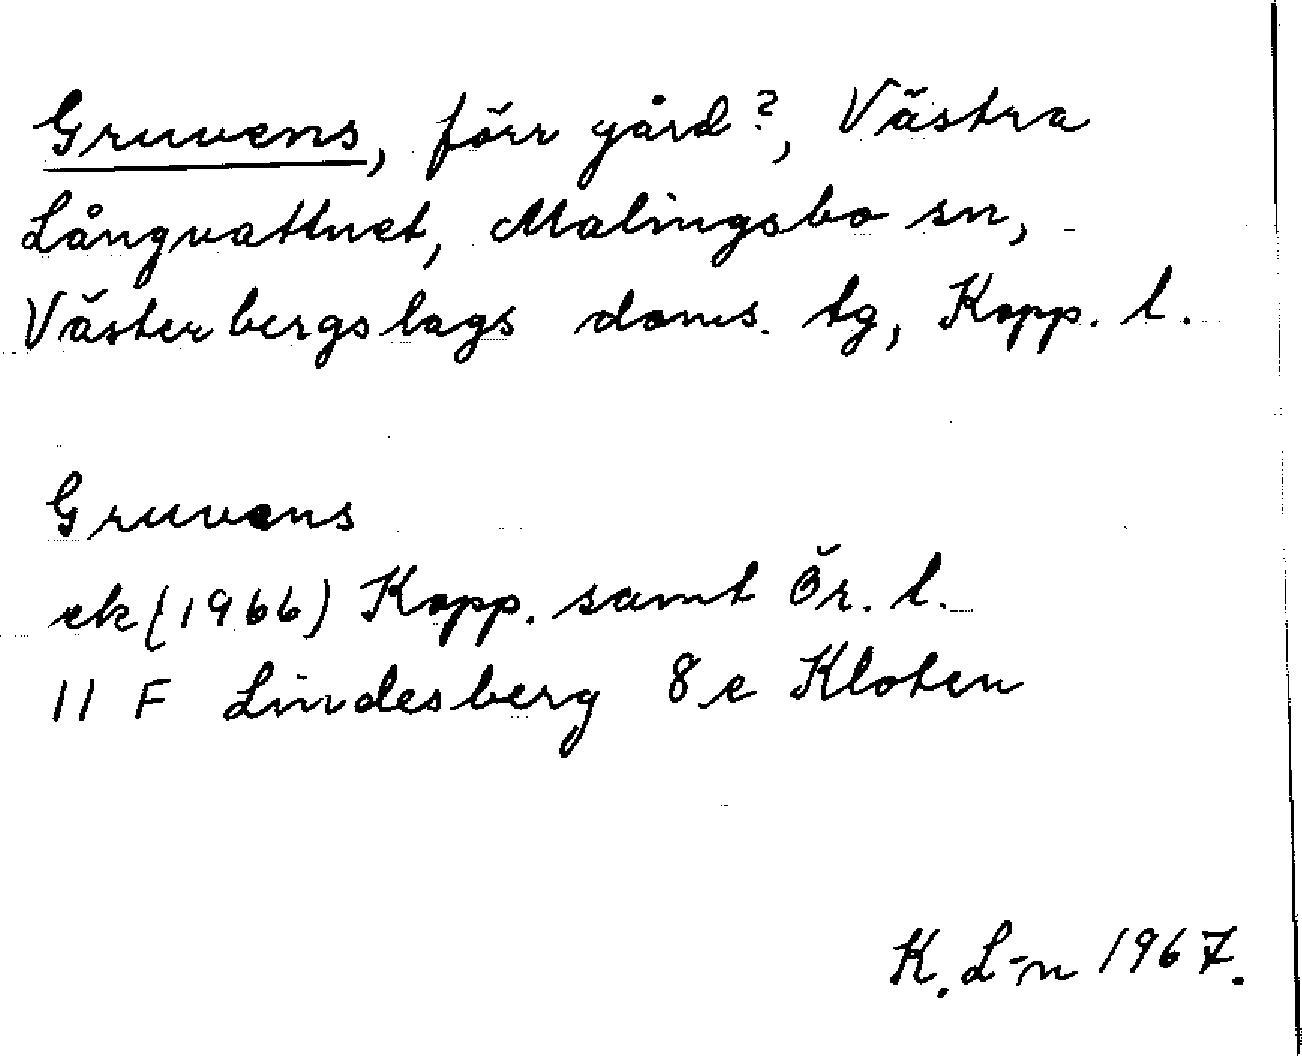 Gruvens, förr gård?, Västra
Långvattnet, Malingsbo sn,
Västerbergslags doms. tg, Kopp. l.
Gruvens
ek (1966) Kopp. samt Ör. l.
11 F Lindesberg 8 e Kloten
K. L-n 1967.